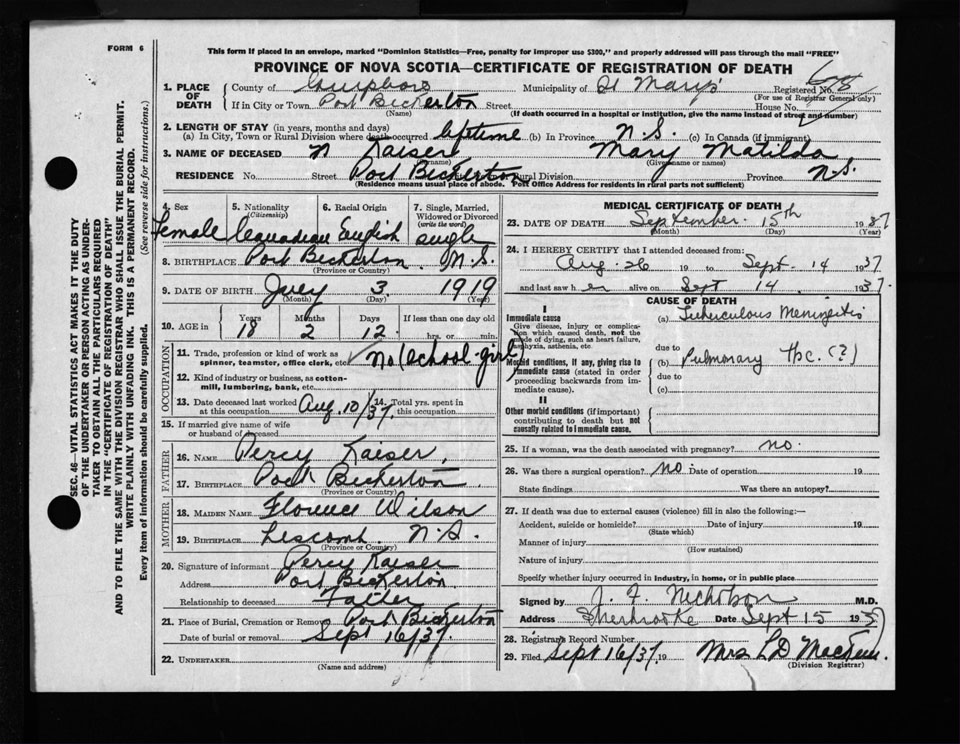 FORM 6
This form if placed in an envelope, marked "Dominion Statistics—Free, penalty for improper use $300," and properly addressed will pass through the mail "FREE"
PROVINCE OF NOVA SCOTIA—CERTIFICATE OF REGISTRATION OF DEATH
SEC. 46—VITAL STATISTICS ACT MAKES IT THE DUTY
OF THE UNDERTAKER OR PERSON ACTING AS UNDER-
TAKER TO OBTAIN ALL THE PARTICULARS REQUIRED
IN THE "CERTIFICATE OF REGISTRATION OF DEATH"
AND TO FILE THE SAME WITH THE DIVISION REGISTRAR WHO SHALL ISSUE THE BURIAL PERMIT.
WRITE PLAINLY WITH UNFADING INK. THIS IS A PERMANENT RECORD.
Every item of information should be carefully supplied. (See reverse side for instructions.)
1. PLACE OF DEATH
County of Guysboro Municipality of St Mary's Registered No.
(For use of Registrar General only)
If in City or Town Port Bickerton Street House No.
(Name) (If death occurred in a hospital or institution, give the name instead of street and number)
2. LENGTH OF STAY (in years, months and days)
(a) In City, Town or Rural Division where death occurred lifetime (b) In Province N.S. (c) In Canada (if immigrant)
3. NAME OF DECEASED Kaiser Mary Matilda
(Given name or names)
RESIDENCE No. Street Port Bickerton Rural Division Province N.S.
(Residence means usual place of abode. Post Office Address for residents in rural parts not sufficient)
4. Sex 5. Nationality 6. Racial Origin 7. Single, Married,
(Citizenship) Widowed or Divorced
(write the word)
Female Canadian English single
8. BIRTHPLACE Port Bickerton N.S.
(Province or Country)
9. DATE OF BIRTH July 3 1919
(Month) (Day) (Year)
10. AGE in Years Months Days If less than one day old
18 2 12 hr. or min.
OCCUPATION
11. Trade, profession or kind of work as
spinner, teamster, office clerk, etc. no (school girl)
12. Kind of industry or business, as cotton-
mill, lumbering, bank, etc.
13. Date deceased last worked at this occupation Aug. 10/37 14. Total yrs. spent in this occupation
15. If married give name of wife
or husband of deceased
FATHER
16. NAME Percy Kaiser
17. BIRTHPLACE Port Bickerton
(Province or Country)
MOTHER
18. MAIDEN NAME Florence Wilson
19. BIRTHPLACE Liscomb N.S.
(Province or Country)
20. Signature of informant Percy Kaiser
Address Port Bickerton
Relationship to deceased Father
21. Place of Burial, Cremation or Removal Port Bickerton
Date of burial or removal Sept 16/37.
22. UNDERTAKER
(Name and address)
MEDICAL CERTIFICATE OF DEATH
23. DATE OF DEATH September 15th 1937
(Month) (Day) (Year)
24. I HEREBY CERTIFY that I attended deceased from:
Aug. 26 19 to Sept. 14 1937
and last saw her alive on Sept 14 1937.
CAUSE OF DEATH
I
Immediate cause
Give disease, injury or complica-
tion which caused death, not the
mode of dying, such as heart failure,
asphyxia, asthenia, etc.
(a) Tuberculous Meningitis
due to
Morbid conditions, if any, giving rise to
immediate cause (stated in order
proceeding backwards from im-
mediate cause).
(b) Pulmonary tbc. (?)
due to
(c)
II
Other morbid conditions (if important)
contributing to death but not
causally related to immediate cause.
25. If a woman, was the death associated with pregnancy? no.
26. Was there a surgical operation? no Date of operation 19
State findings Was there an autopsy?
27. If death was due to external causes (violence) fill in also the following:—
Accident, suicide or homicide? Date of injury 19
(State which)
Manner of injury
(How sustained)
Nature of injury
Specify whether injury occurred in industry, in home, or in public place
Signed by Nicholson M.D.
Address Sherbrooke Date Sept 15 1937
28. Registrar's Record Number
29. Filed Sept 16/37 19 Mrs L D
(Division Registrar)